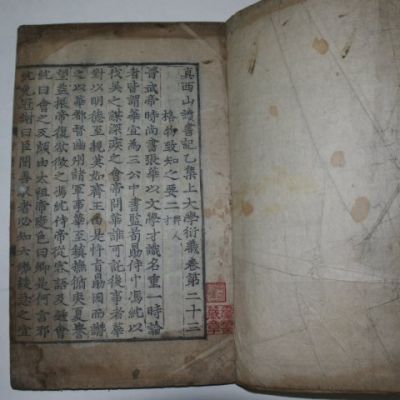 真西山讀書記乙集上大學衍義卷第二十三
格物致知之要二 辨人才
晉武帝時尚書張華以文學才識名重一時論
者皆謂華宜為三公中書監荀勗侍中馮紞以
伐吳之謀深疾之會帝問華誰可託後事者華
對以明德至親莫如齊王由是忤旨勗因而譖
之以華都督幽州諸軍事華至鎮撫循夷夏譽
望益振帝復欲徵之馮紞侍帝從容語及鍾會
紞曰會之反頗由太祖帝變色曰卿是何言邪
紞免冠謝曰臣聞善御者必知六轡緩急之宜